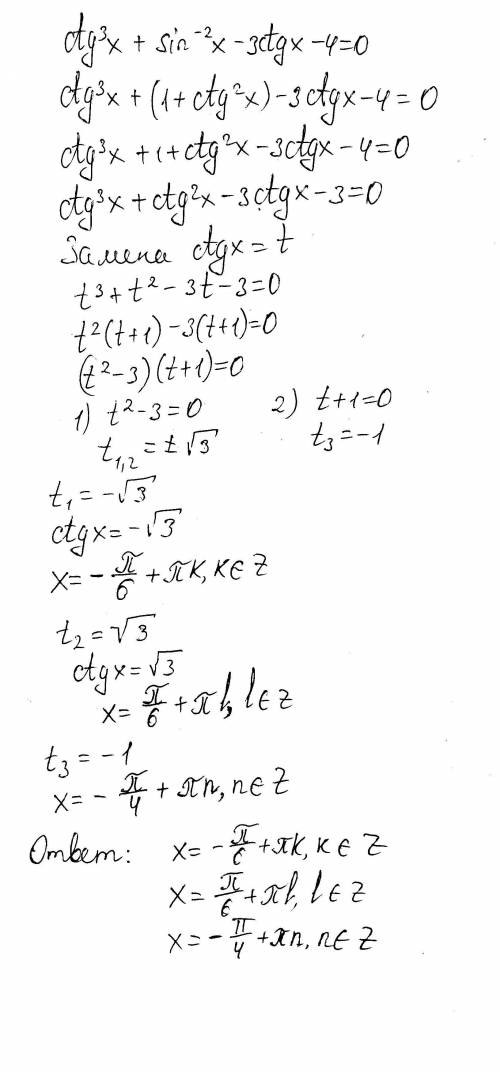 ctg³x + sin⁻²x - 3ctgx - 4 = 0
ctg³x + (1 + ctg²x) - 3ctgx - 4 = 0
ctg³x + 1 + ctg²x - 3ctgx - 4 = 0
ctg³x + ctg²x - 3ctgx - 3 = 0
Замена ctgx = t
t³ + t² - 3t - 3 = 0
t²(t+1) - 3(t+1) = 0
(t² - 3)(t+1) = 0
1) t² - 3 = 0 2) t + 1 = 0
t₁,₂ = ±√3 t₃ = -1
t₁ = -√3
ctgx = -√3
x = -π/6 + πk, k ∈ Z
t₂ = √3
ctgx = √3
x = π/6 + πl, l ∈ Z
t₃ = -1
x = -π/4 + πn, n ∈ Z
Ответ: x = -π/6 + πk, k ∈ Z
x = π/6 + πl, l ∈ Z
x = -π/4 + πn, n ∈ Z